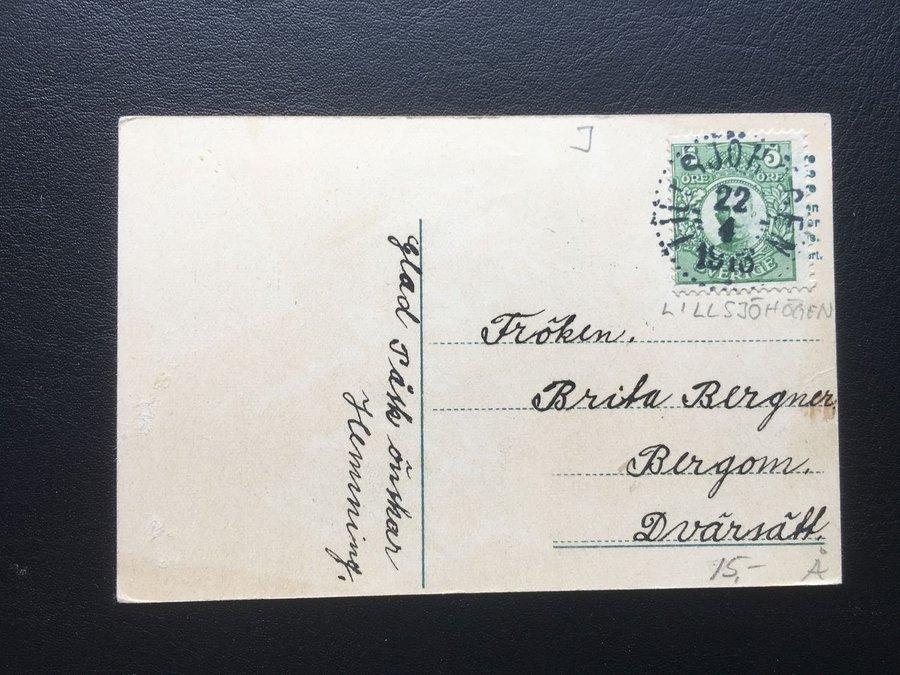 J
5 5
ÖRE ÖRE
22
4
SVERIGE
LILLSJÖHÖGEN
LILLSJÖHÖGEN
Fröken.
Brita Bergner
Bergom.
Dvärsätt.
15,- Å
Glad Påsk önskar
Hemming.